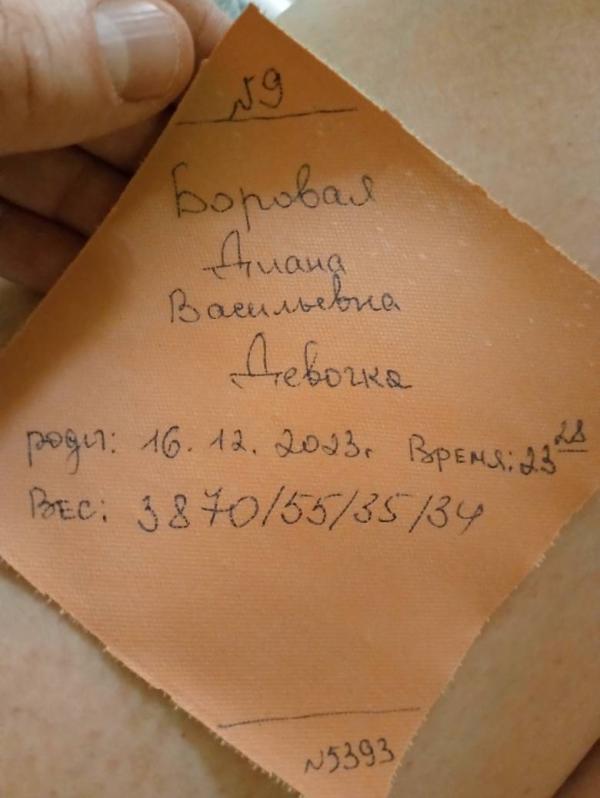 №9
Боровая
Диана
Васильевна
Девочка
родил: 16. 12. 2023г. Время: 23 28
Вес: 3870/55/35/34
№5393